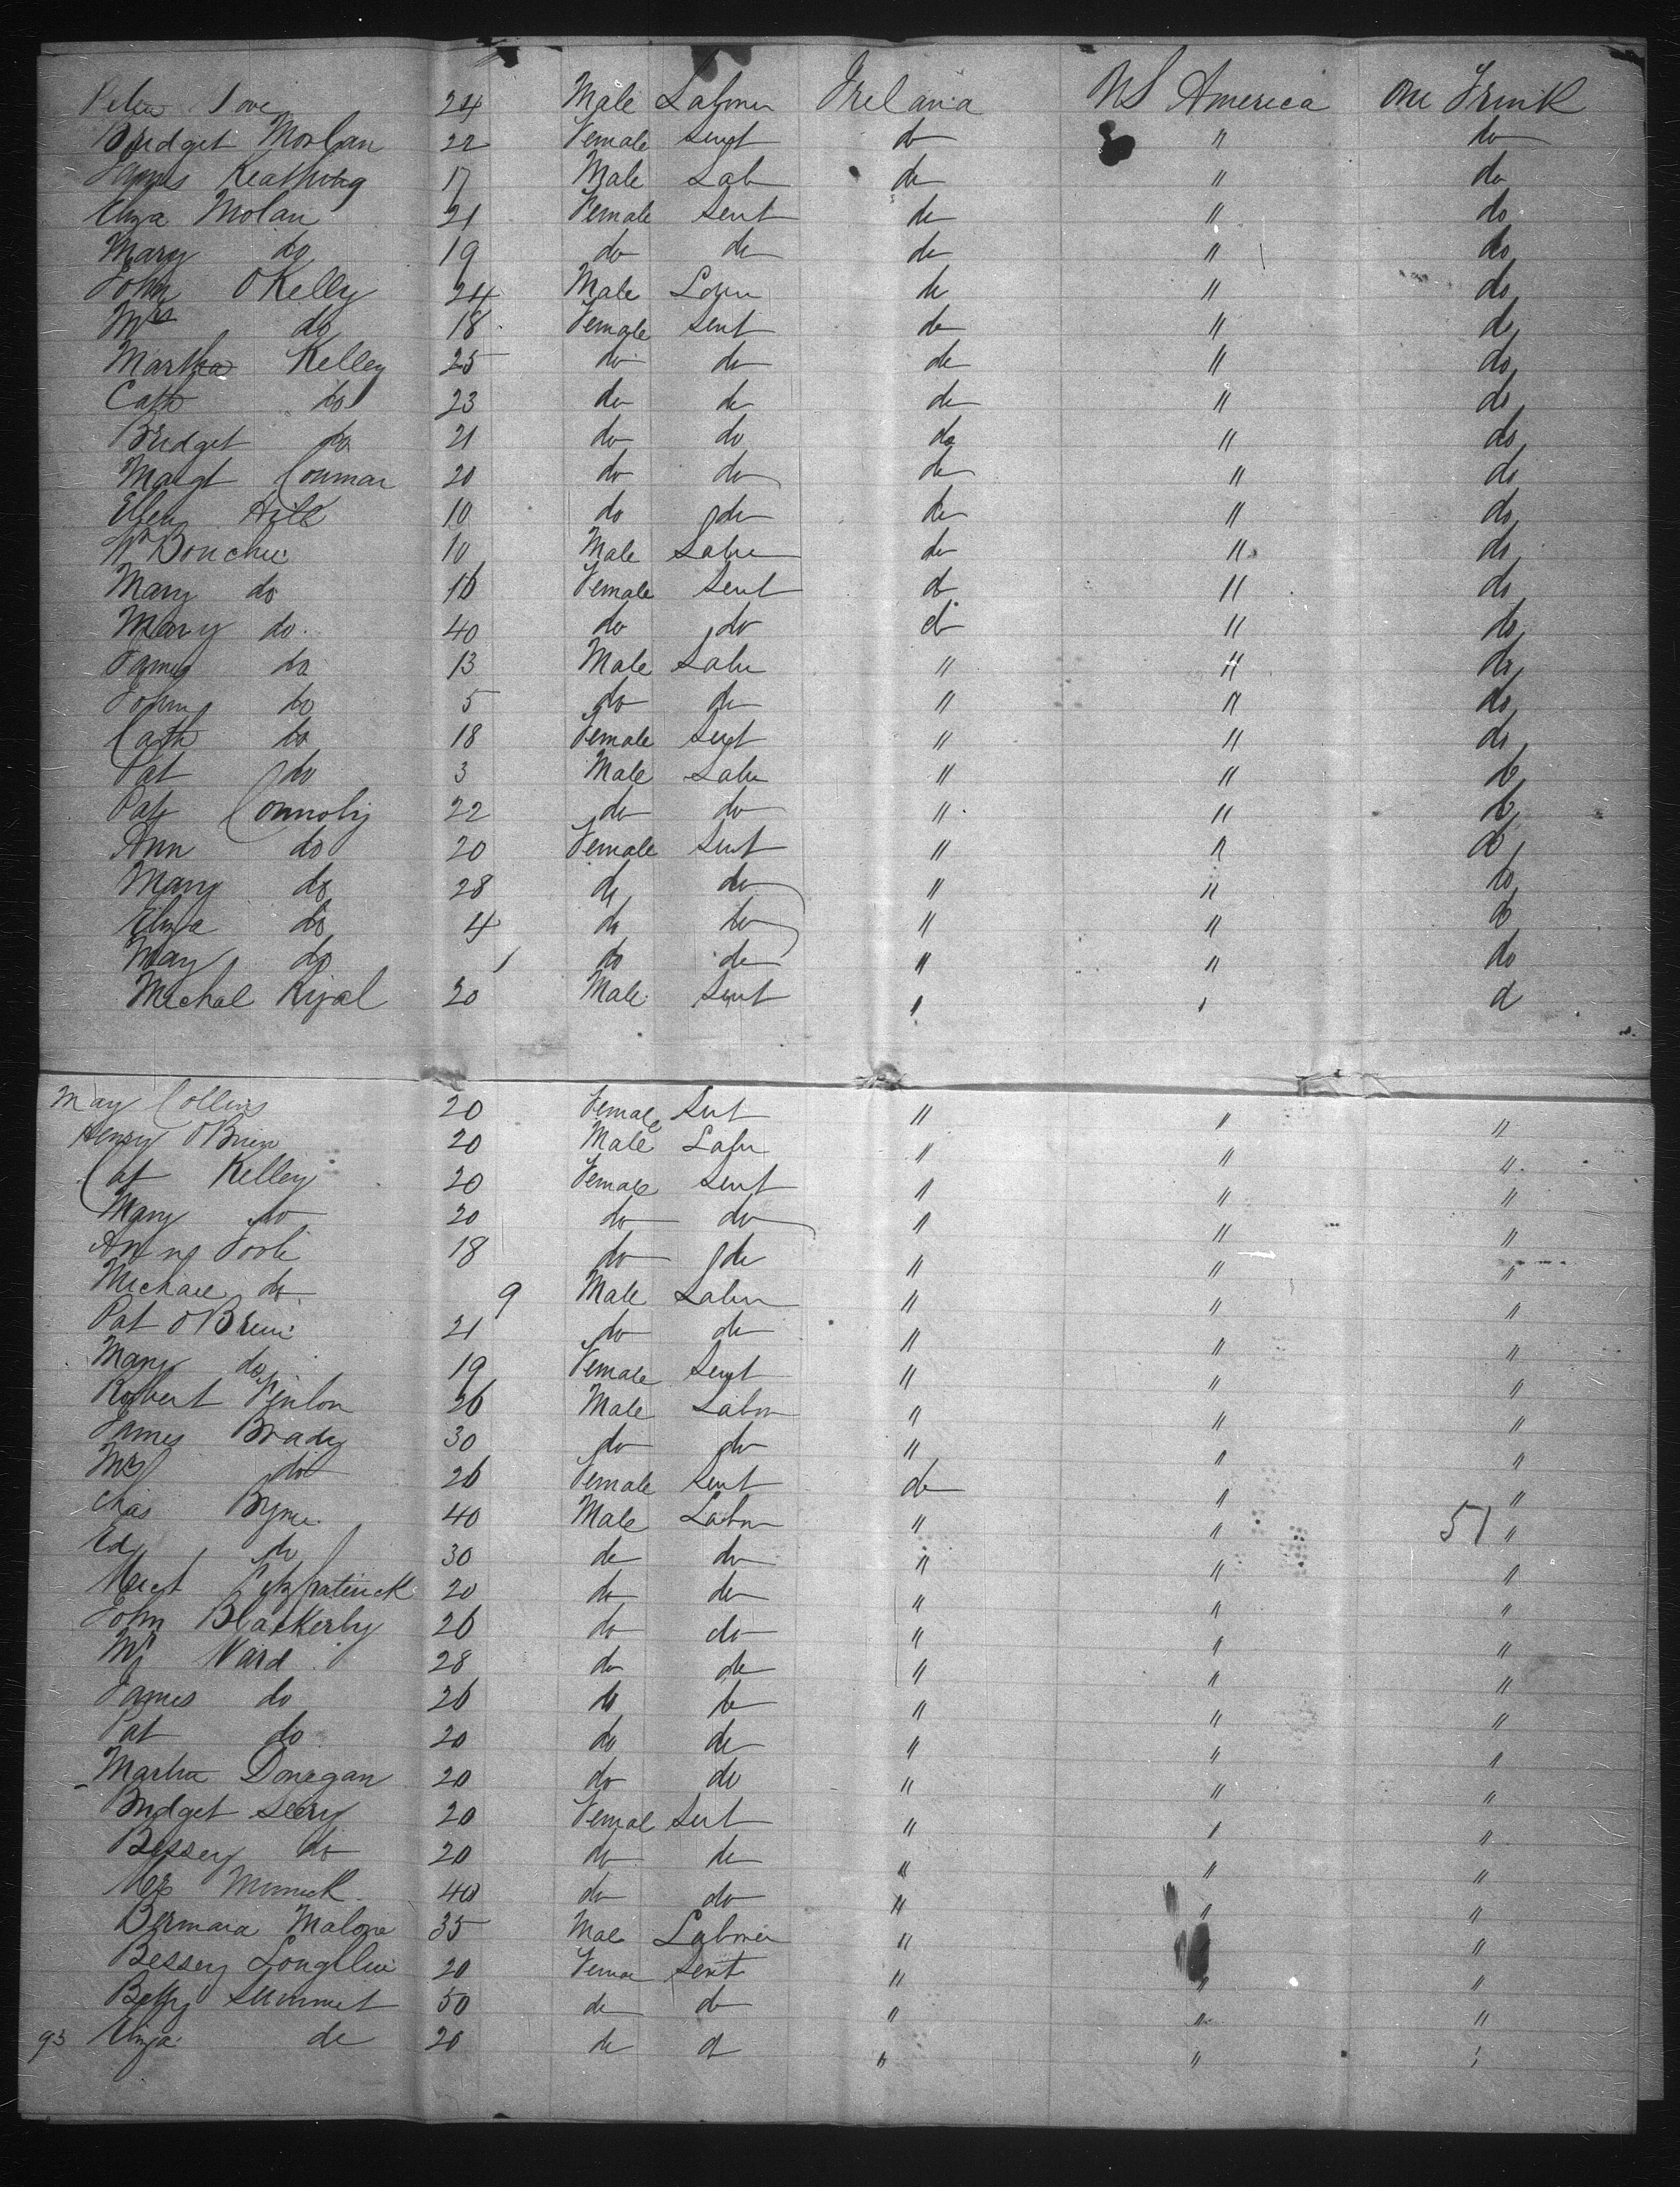 Peter Love 24 Male Labourer Ireland US America one Trunk
Bridget Morlan 22 Female Servt do " do
James Keathing 17 Male Lab do " do
Eliza Molan 21 Female Servt do " do
Mary do 19 do do do " do
John OKelly 24 Male Labr do " do
Mrs do 18 Female Servt do " do
Martha Kelley 25 do do do " do
Cath do 23 do do do " do
Bridget do 21 do do do " do
Margt 20 do do do " do
Ellen 10 do do do " do
10 Male Labr do " do
Mary do 16 Female Servt do " do
Mary do 40 do do do " do
James do 13 Male Labr " " do
John do 5 do do " " do
Cath do 18 Female Servt " " do
Pat do 3 Male Labr " " do
Pat Connoly 22 do do " " do
Ann do 20 Female Servt " " do
Mary do 28 do do " " do
Eliza do 4 do do " " do
May do 1 do do " " do
Michal 20 Male Servt " " do
May Collins 20 Female Servt " " "
Henry OBrien 20 Male Labr " " "
Cat Kelley 20 Female Servt " " "
Mary do 20 do do " " "
18 do do " " "
Michael do 9 Male Labr " " "
Pat OBrien 21 do do " " "
Mary do 19 Female Servt " " "
Robert 26 Male Labr " " "
James Brady 30 do do " " "
Mrs do 26 Female Servt do " "
Chas Byrne 40 Male Labr " " 51 "
Ed do 30 do do " " "
Fitzpatrick 20 do do " " "
John Blackerby 26 do do " " "
Ward 28 do do " " "
James do 26 do do " " "
Pat do 20 do do " " "
Donegan 20 do do " " "
Bridget Seery 20 Femal Servt " " "
Bessey do 20 do do " " "
40 do do " " "
Malone 35 Male Labourer " " "
Bessey 20 Female Servt " " "
Betty 50 do do " " "
93 Eliza do 20 do do " " "